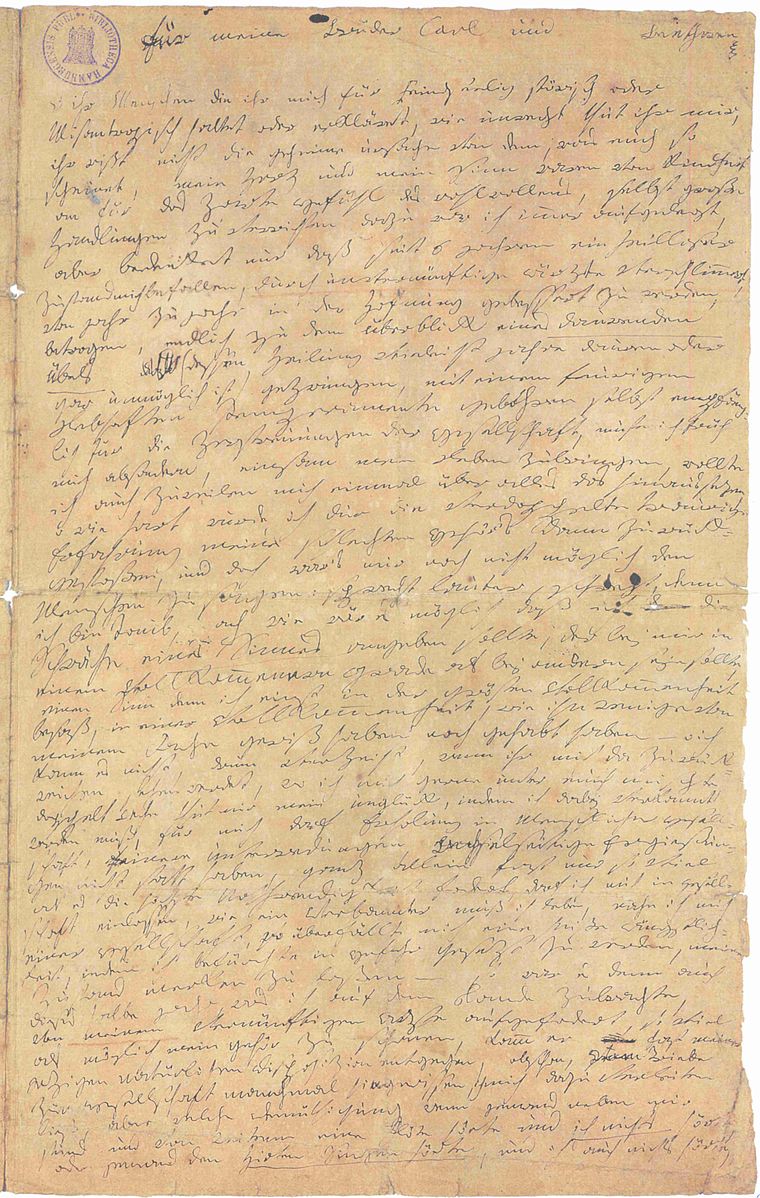 für meine Brüder Carl und Beethowen
O ihr Menschen die ihr mich für Feindseelig störisch oder
Misantropisch haltet oder erkläret, wie unrecht thut ihr mir,
ihr wißt nicht die geheime ursache von dem, was euch so
scheinet, mein Herz und mein Sinn waren von Kindheit
an für das Zarte Gefühl des wohlwollens, selbst große
Handlungen zu verrichten dazu war ich imer aufgelegt,
aber bedenket nur daß seit 6 jahren ein heilloser
Zustand mich befallen, durch unvernünftige ärzte verschlimmert,
von jahr zu jahr in der Hofnung gebessert zu werden,
betrogen, endlich zu dem überblick eines daurenden
Übels (dessen Heilung vieleicht jahre dauren oder
gar unmöglich ist) gezwungen, mit einem feurigen
Lebhaften Temperamente gebohren selbst empfäng-
lich für die Zerstreuungen der Gesellschaft, muste ich früh
mich absondern, einsam mein Leben zubringen, wollte
ich auch zuweilen mich einmal über alles das hinaussezen,
o wie hart wurde ich dur die verdoppelte traurige
Erfahrung meines schlechten Gehör's dann zurück-
gestoßen, und doch war's mir noch nicht möglich den
Menschen zu sagen: sprecht lauter, schreyt, denn
ich bin taub, ach wie wär es möglich daß ich die
Schwäche eines Sinnes angeben sollte, der bey mir in
einem Vollkommenern grade als bey andern seyn sollte,
einen Sinn denn ich einst in der grösten Vollkommenheit
besaß, in einer Vollkommenheit, wie ihn wenige von
meinem Fache gewiß haben noch gehabt haben – o ich
kann es nicht, drum verzeiht, wenn ihr mich da zurück-
weichen sehen werdet, wo ich mich gerne unter euch mischte,
doppelt Wehe thut mir mein unglück, indem ich dabey verkannt
werden muß, für mich darf Erholung in Menschlicher Gesell-
schaft, feinere unterredungen, Wechselseitige Ergießun-
gen nicht statt haben, ganz allein fast nur so viel
als es die höchste Nothwendigkeit fodert darf ich mich in gesell-
schaft einlassen, wie ein Verbannter muß ich leben, nahe ich mich
einer Gesellschaft, so überfällt mich eine heiße ängstlich-
keit, indem ich befürchte in Gefahr gesezt zu werden, meinen
Zustand merken zu lassen – so war es denn auch
dieses halbe jahr was ich auf dem Lande zubrachte,
von meinem Vernünftigen Arzte aufgefodert, so viel
als möglich mein Gehör zu schonen, kamm er fast meiner
jezigen natürlichen Disposizion entgegen, obschon, Vom Triebe
zur Gesellschaft manchmal hingerissen, ich mich dazu verleiten
ließ, aber welche Demüthigung wenn jemand neben mir
stund und von weitem eine flöte hörte und ich nichts hörte
oder jemand den Hirten Singen hörte, und ich auch nichts hörte,